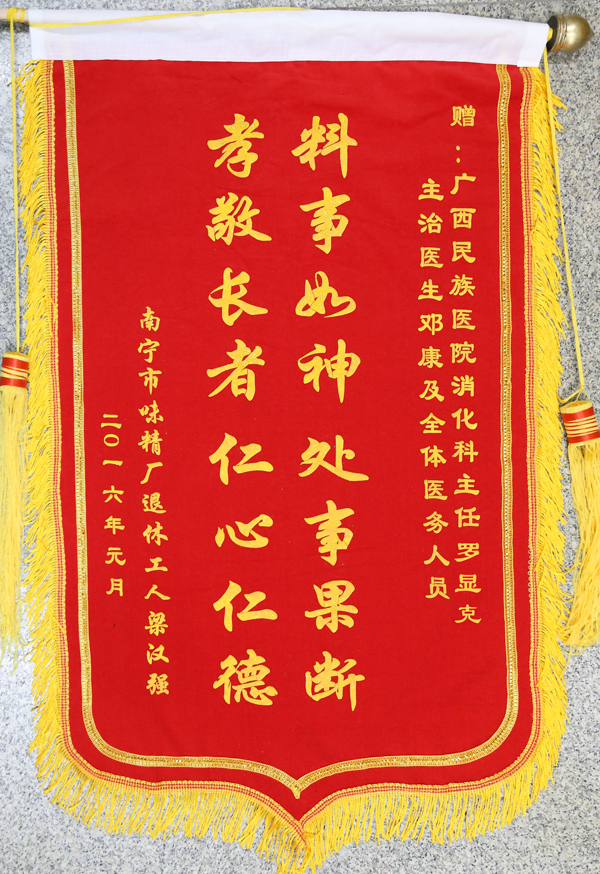 赠：广西民族医院消化科主任罗显克
主治医生邓康及全体医务人员
料事如神处事果断
孝敬长者仁心仁德
南宁市味精厂退休工人梁汉强
二〇一六年元月